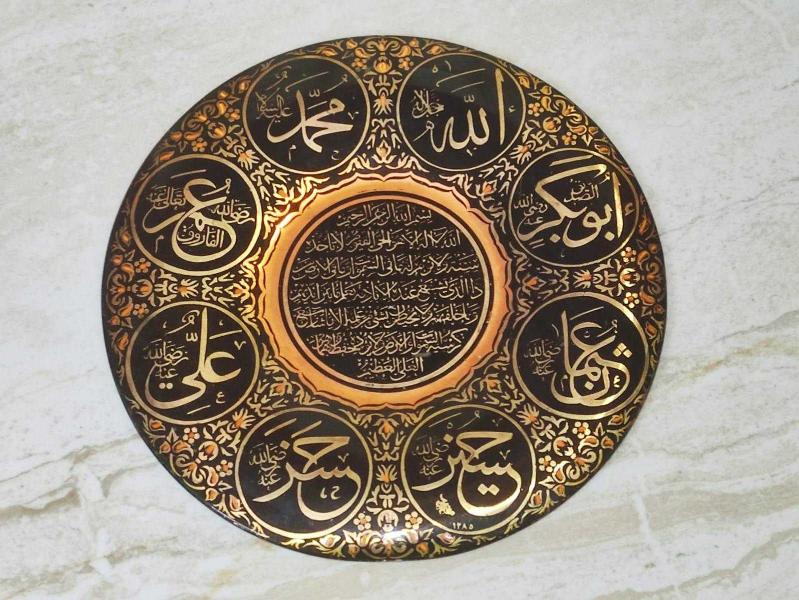 الله جل جلاله
محمد عليه السلام
ابو بكر الصديق رضي الله عنه
عمر الفاروق رضي الله تعالى عنه
بسم الله الرحمن الرحيم
الله لا اله الا هو الحي القيوم لا تاخذه
سنة ولا نوم له ما في السموات وما في الارض من
ذا الذي يشفع عنده الا باذنه يعلم ما بين ايديهم
وما خلفهم ولا يحيطون بشيء من علمه الا بما شاء وسع
كرسيه السموات والارض ولا يؤده حفظهما وهو
العلي العظيم
عثمان رضي الله عنه
علي رضي الله عنه
حسين رضي الله عنه
حسن رضي الله عنه
١٢٨٥